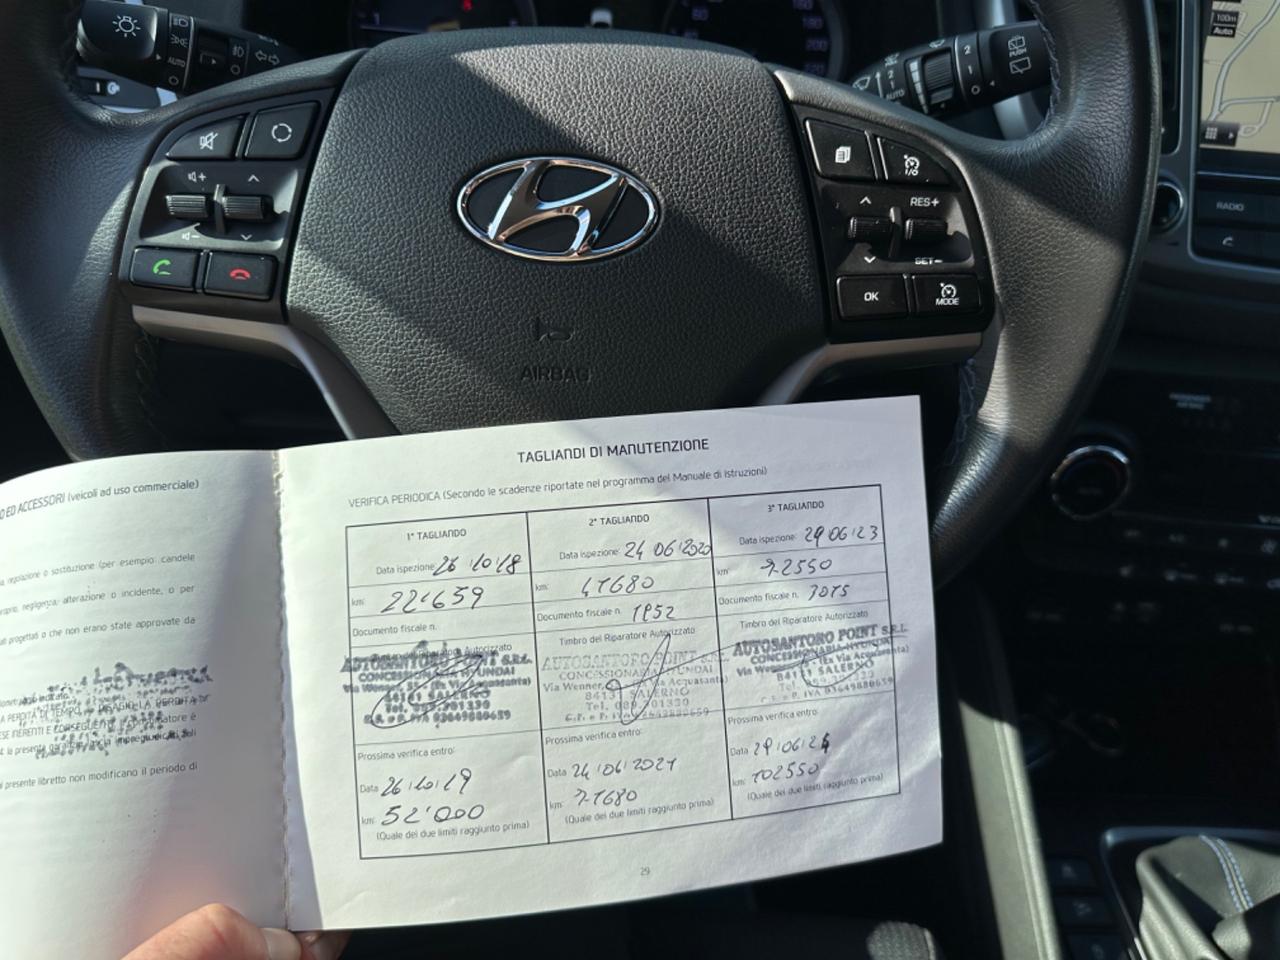 AUTO
100m
Auto
RADIO
RES+
SET-
OK
MODE
AIRBAG
O ED ACCESSORI (veicoli ad uso commerciale)
regolazione o sostituzione (per esempio: candele
negligenza, alterazione o incidente, o per
progettati o che non erano state approvate da
presente libretto non modificano il periodo di
TAGLIANDI DI MANUTENZIONE
VERIFICA PERIODICA (Secondo le scadenze riportate nel programma del Manuale di Istruzioni)
1° TAGLIANDO
Data ispezione: 26/10/18
km: 22'659
Documento fiscale n.
AUTOSANTORO POINT S.R.L.
CONCESSIONARIA HYUNDAI
Via Wenner, (Ex Via Acquasanta)
84131 SALERNO
Tel. 089.301330
C.F. e P. IVA 03649880659
Prossima verifica entro:
Data 26/10/19
km: 52'000
(Quale dei due limiti raggiunto prima)
2° TAGLIANDO
Data ispezione: 24/06/2020
km: 47680
Documento fiscale n. 1952
Timbro del Riparatore Autorizzato
AUTOSANTORO POINT S.R.L.
CONCESSIONARIA HYUNDAI
Via Wenner, (Ex Via Acquasanta)
84131 SALERNO
Tel. 089.301330
C.F. e P. IVA 03649880659
Prossima verifica entro:
Data 24/06/2021
km: 77680
(Quale dei due limiti raggiunto prima)
3° TAGLIANDO
Data ispezione: 29/06/23
km: 72550
Documento fiscale n. 3075
Timbro del Riparatore Autorizzato
AUTOSANTORO POINT S.R.L.
CONCESSIONARIA HYUNDAI
Via Wenner, (Ex Via Acquasanta)
84131 SALERNO
Tel. 089.301330
P. IVA 03649880659
Prossima verifica entro:
Data 29/06/24
km: 102550
(Quale dei due limiti raggiunto prima)
29